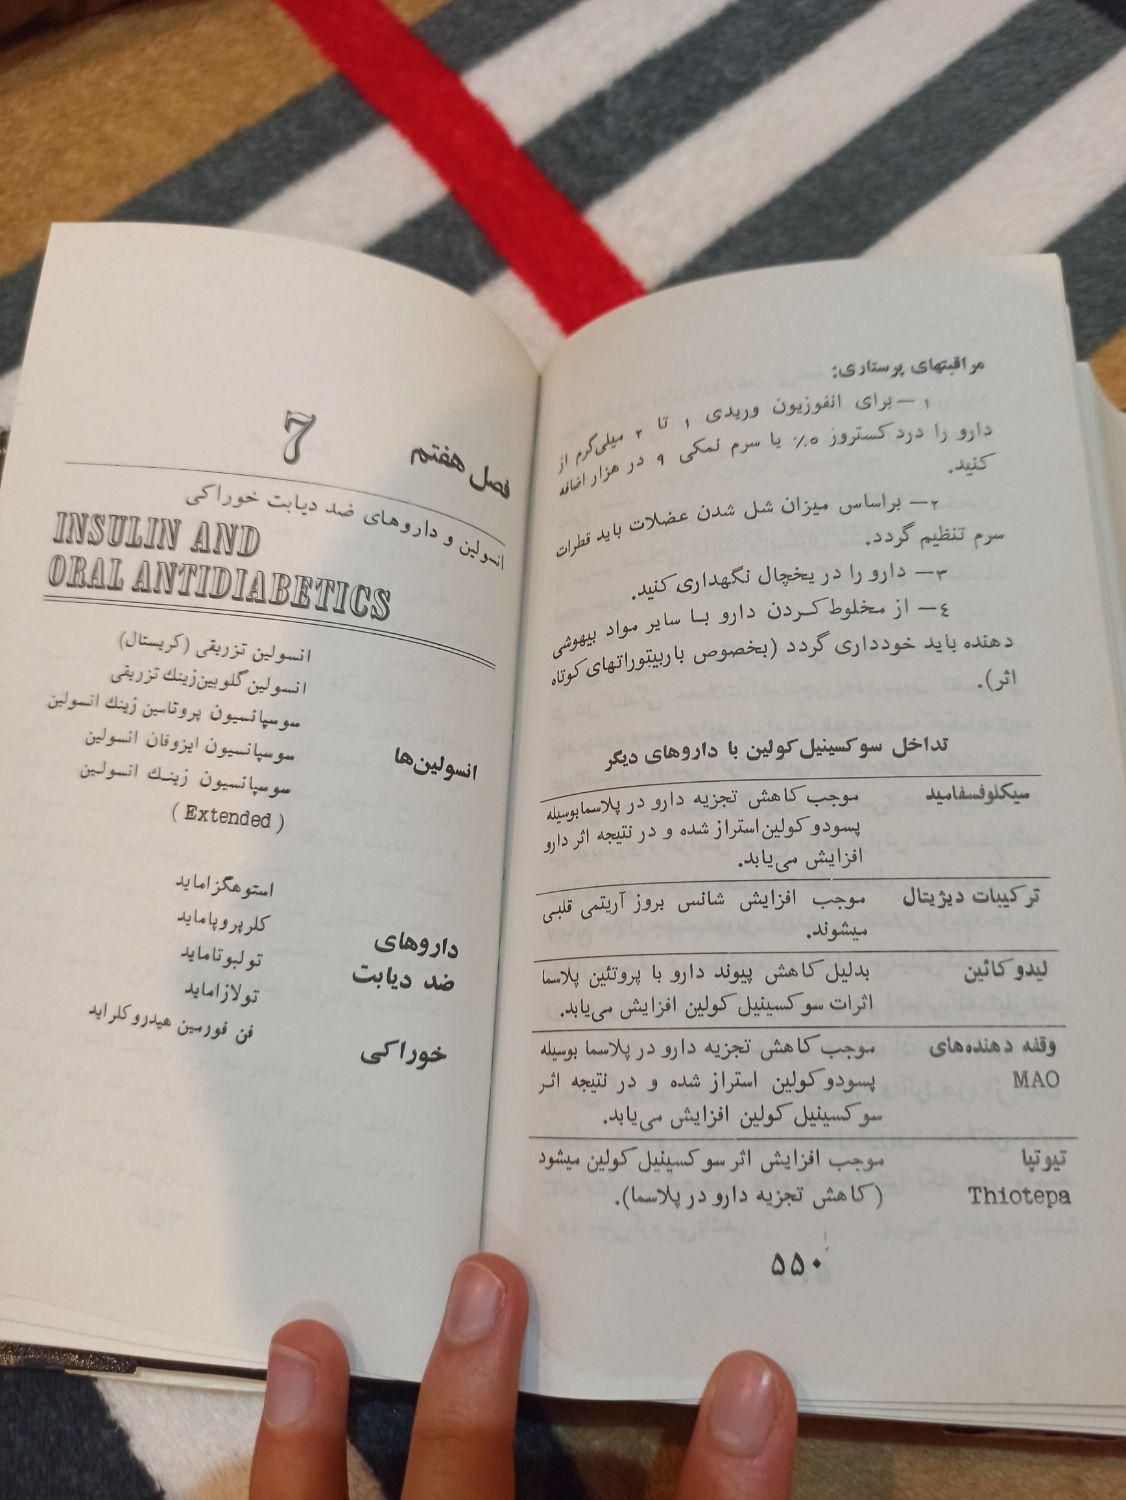 مراقبتهای پرستاری:
۱ – برای انفوزیون وریدی ۱ تا ۲ میلی‌گرم از
دارو را در دکستروز ۵٪ یا سرم نمکی ۹ در هزار اضافه
کنید.
۲ – براساس میزان شل شدن عضلات باید قطرات
سرم تنظیم گردد.
۳ – دارو را در یخچال نگهداری کنید.
٤ – از مخلوط کردن دارو با سایر مواد بیهوشی
دهنده باید خودداری گردد (بخصوص باربیتوراتهای کوتاه
اثر).
تداخل سوکسینیل کولین با داروهای دیگر
سیکلوفسفامید موجب کاهش تجزیه دارو در پلاسما بوسیله
پسودو کولین استراز شده و در نتیجه اثر دارو
افزایش می‌یابد.
ترکیبات دیژیتال موجب افزایش شانس بروز آریتمی قلبی
میشوند.
لیدوکائین بدلیل کاهش پیوند دارو با پروتئین پلاسما
اثرات سوکسینیل کولین افزایش می‌یابد.
وقفه دهنده‌های موجب کاهش تجزیه دارو در پلاسما بوسیله
MAO پسودو کولین استراز شده و در نتیجه اثر
سوکسینیل کولین افزایش می‌یابد.
تیوتپا موجب افزایش اثر سوکسینیل کولین میشود
Thiotepa (کاهش تجزیه دارو در پلاسما).
۵۵۰
فصل هفتم 7
انسولین و داروهای ضد دیابت خوراکی
INSULIN AND
ORAL ANTIDIABETICS
انسولین‌ها
انسولین تزریقی (کریستال)
انسولین گلوبین زینك تزریقی
سوسپانسیون پروتاسین زینك انسولین
سوسپانسیون ایزوفان انسولین
سوسپانسیون زینك انسولین
(Extended)
داروهای
ضد دیابت
خوراکی
استوهگزاماید
کلرپروپاماید
تولبوتاماید
تولازاماید
فن فورمین هیدروکلراید